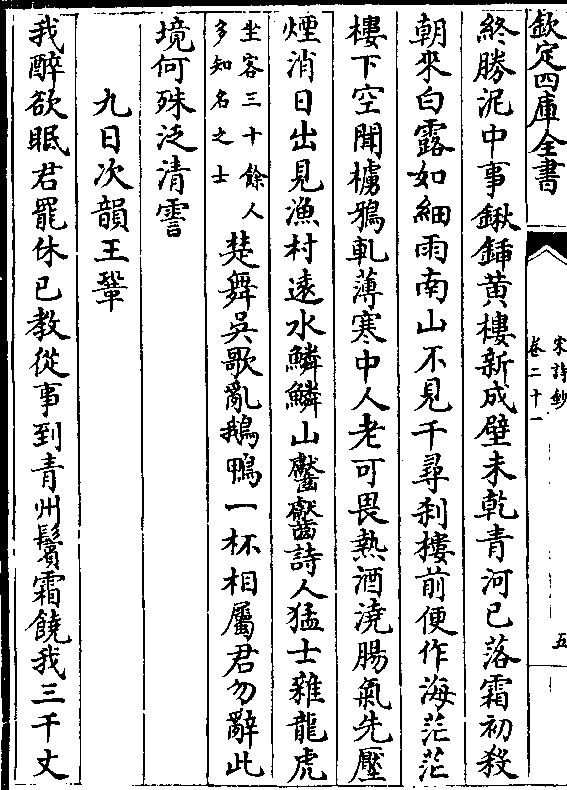 欽定四庫全書
宋詩鈔
卷二十一
五
終勝泥中事鍬鍤黄樓新成壁未乾青河已落霜初殺
朝來白露如細雨南山不見千尋刹樓前便作海茫茫
樓下空聞櫓鴉軋薄寒中人老可畏熱酒澆腸氣先壓
煙消日出見漁村遠水鱗鱗山齾齾詩人猛士雜龍虎
坐客三十餘人
多知名之士
楚舞吳歌亂鵝鴨一杯相屬君勿辭此
境何殊泛清霅
九日次韻王鞏
我醉欲眠君罷休已教從事到青州鬢霜饒我三千丈